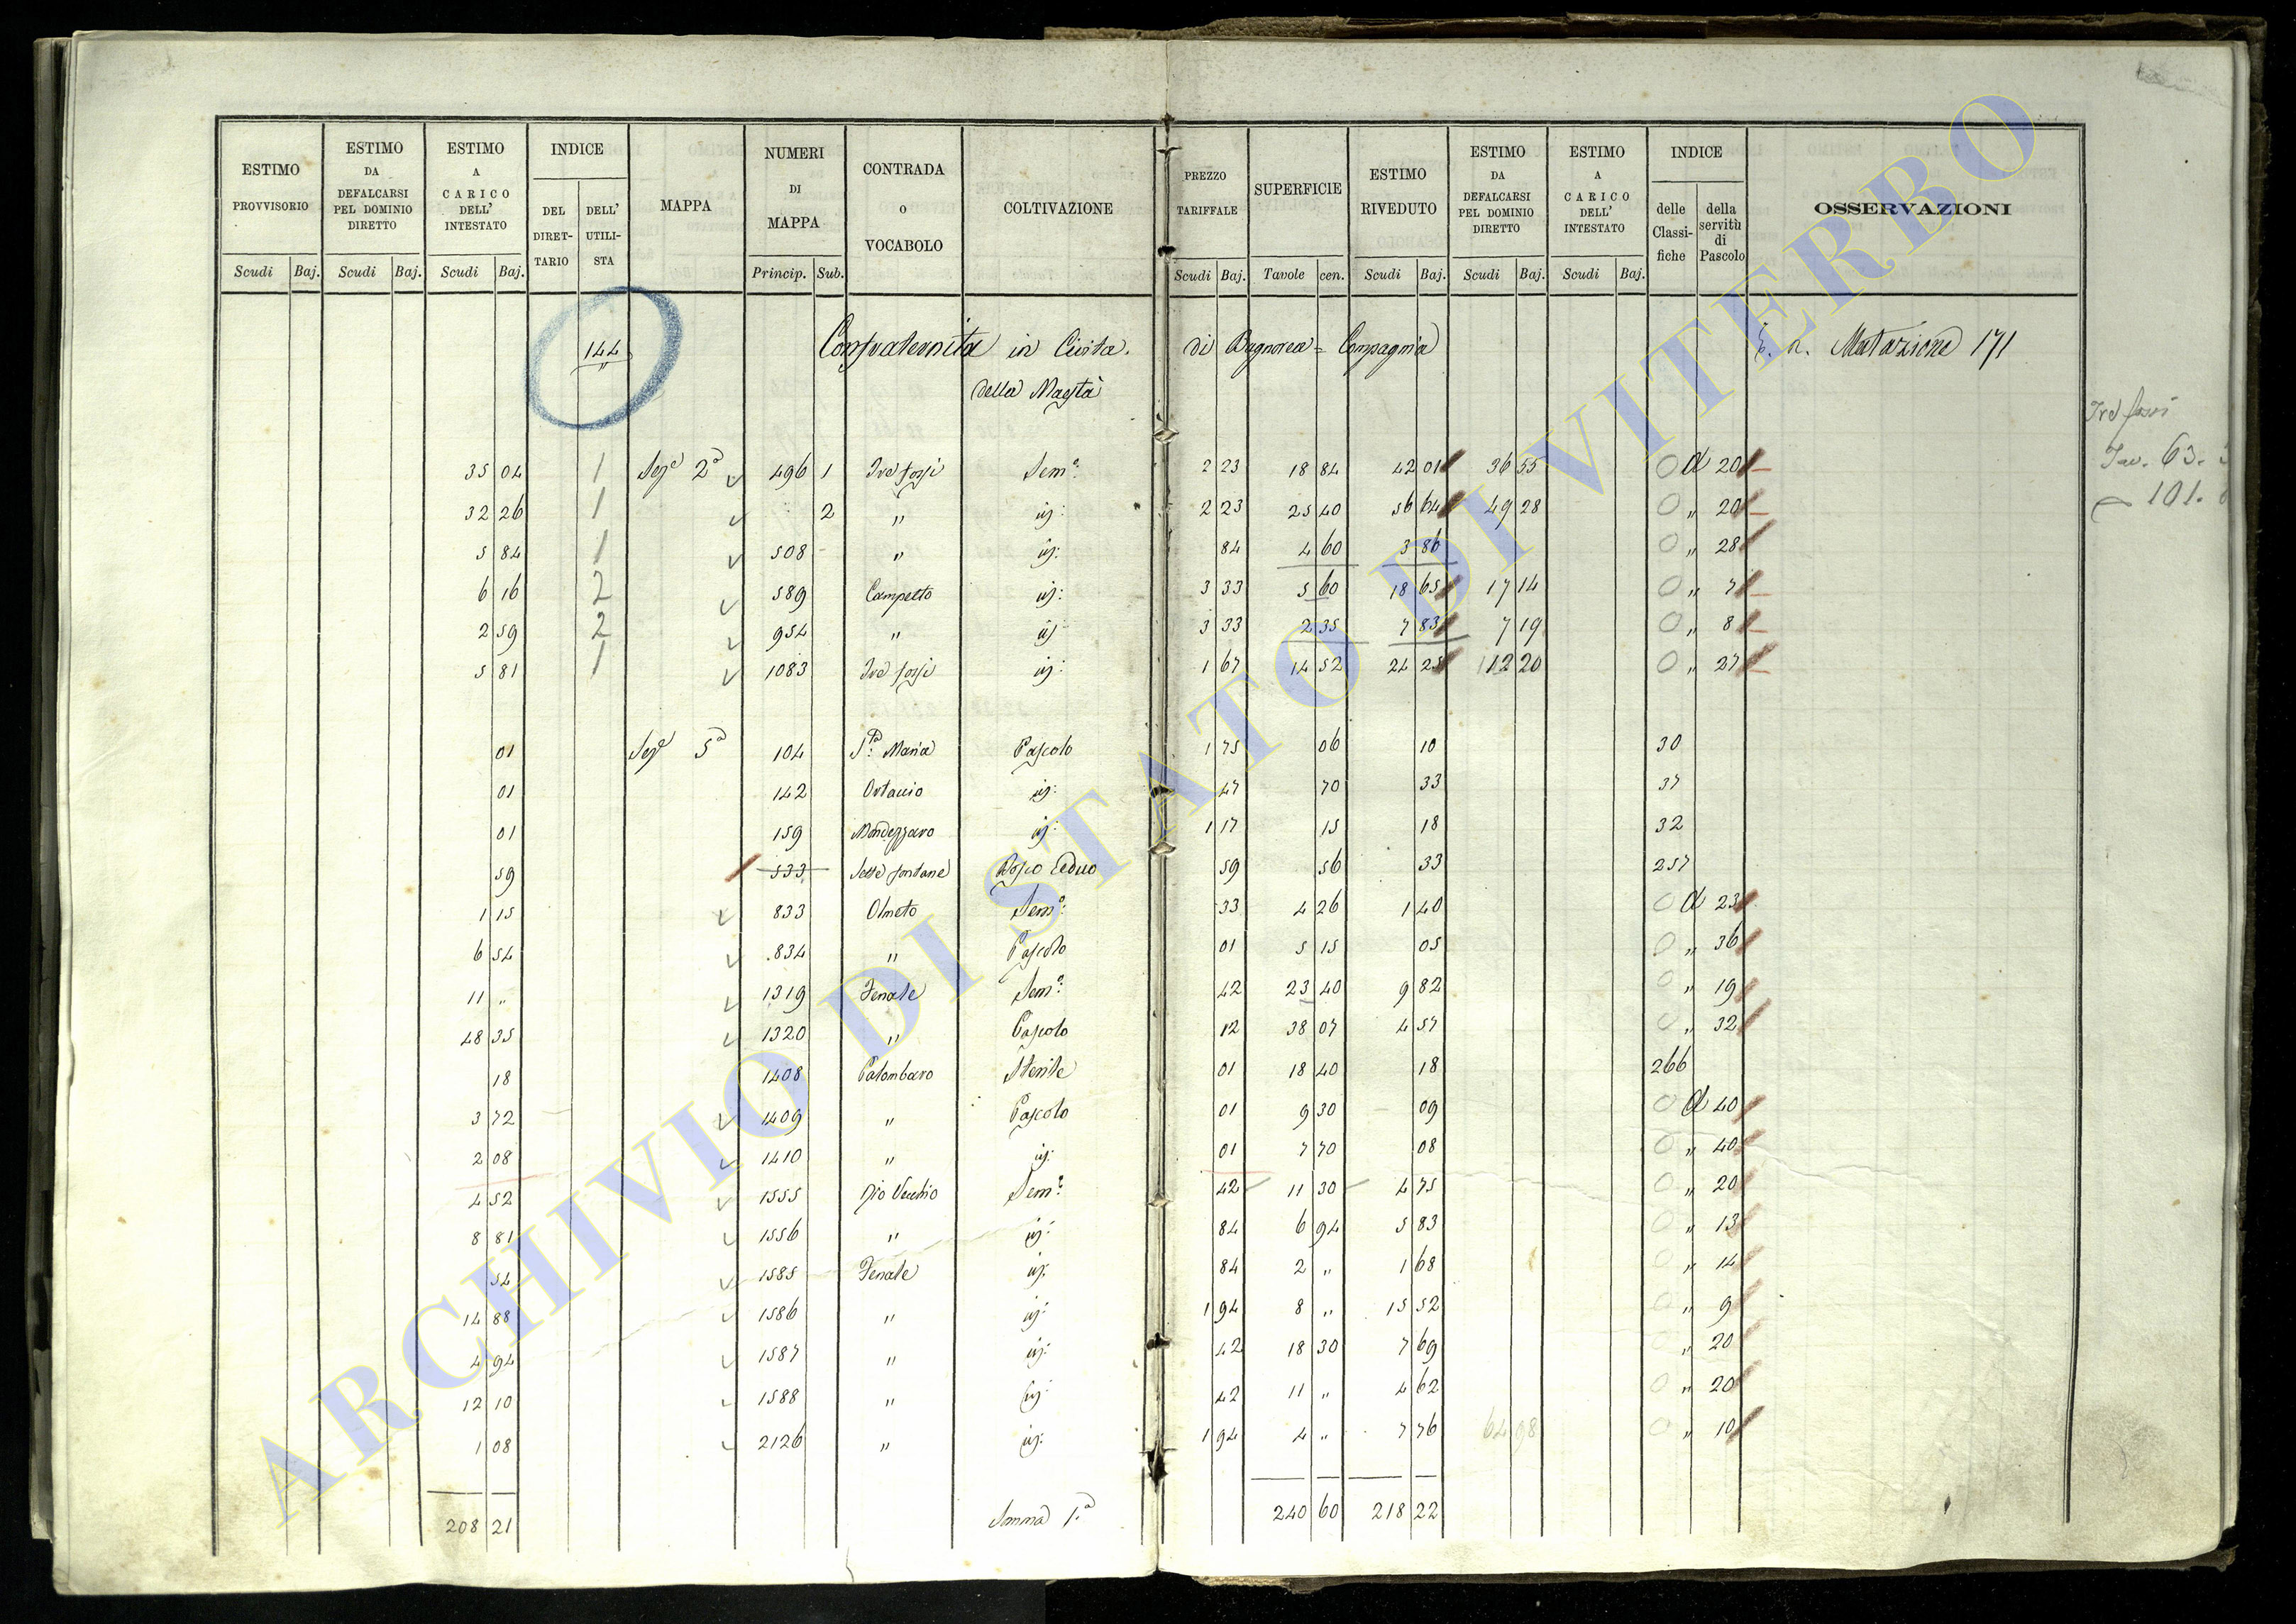 ESTIMO PROVVISORIO Scudi Baj. ESTIMO DA DEFALCARSI PEL DOMINIO DIRETTO Scudi Baj. ESTIMO A CARICO DELL' INTESTATO Scudi Baj. INDICE DEL DIRETTARIO DELL' UTILISTA MAPPA NUMERI DI MAPPA Princip. Sub. CONTRADA O VOCABOLO COLTIVAZIONE PREZZO TARIFFALE Scudi Baj. SUPERFICIE Tavole cen. ESTIMO RIVEDUTO Scudi Baj. ESTIMO DA DEFALCARSI PEL DOMINIO DIRETTO Scudi Baj. ESTIMO A CARICO DELL' INTESTATO Scudi Baj. INDICE delle Classifiche della servitù di Pascolo OSSERVAZIONI
144 Confraternita in Civita di Bagnorea = Compagnia Mutazione 171
della Maestà
Tre fossi
Tav. 63.
101.
35 04 1 Sezе 2a 496 1 Tre fossi Semo: 2 23 18 84 42 01 36 55 0 a 20
32 26 1 2 " id: 2 23 25 40 56 64 49 28 0 " 20
5 84 1 508 " id: 84 4 60 3 86 0 " 28
6 16 2 589 Campetto id: 3 33 5 60 18 65 17 14 0 " 7
2 59 2 954 " id 3 33 2 35 7 83 7 19 0 " 8
5 81 1 1083 Tre fossi id: 1 67 14 52 24 25 12 20 0 " 27
01 Seze 5a 104 Sta: Maria Pascolo 1 75 06 10 30
01 142 Ortaccio id: 47 70 33 37
01 159 Mondezzaro id: 1 17 15 18 32
59 533 Sette fontane Bosco Ceduo 59 56 33 257
1 15 833 Olmeto Semo: 33 4 26 1 40 0 a 23
6 54 834 " Pascolo 01 5 15 05 0 " 36
11 " 1319 Fenale Semo: 42 23 40 9 82 0 " 19
48 35 1320 " Pascolo 12 38 07 4 57 0 " 32
18 1408 Palombaro Sterile 01 18 40 18 266
3 72 1409 " Pascolo 01 9 30 09 0 a 40
2 08 1410 " id: 01 7 70 08 0 " 40
4 52 1555 Rio Vecchio Semo: 42 11 30 4 75 0 " 20
8 81 1556 " id: 84 6 94 5 83 0 " 13
54 1585 Fenale id: 84 2 " 1 68 0 " 14
14 88 1586 " id: 1 94 8 " 15 52 0 " 9
4 94 1587 " id: 42 18 30 7 69 " 20
12 10 1588 " id: 42 11 " 4 62 0 " 20
1 08 2126 " id: 1 94 4 " 7 76 64 98 0 " 10
208 21 Somma 1.a 240 60 218 22
ARCHIVIO DI STATO DI VITERBO